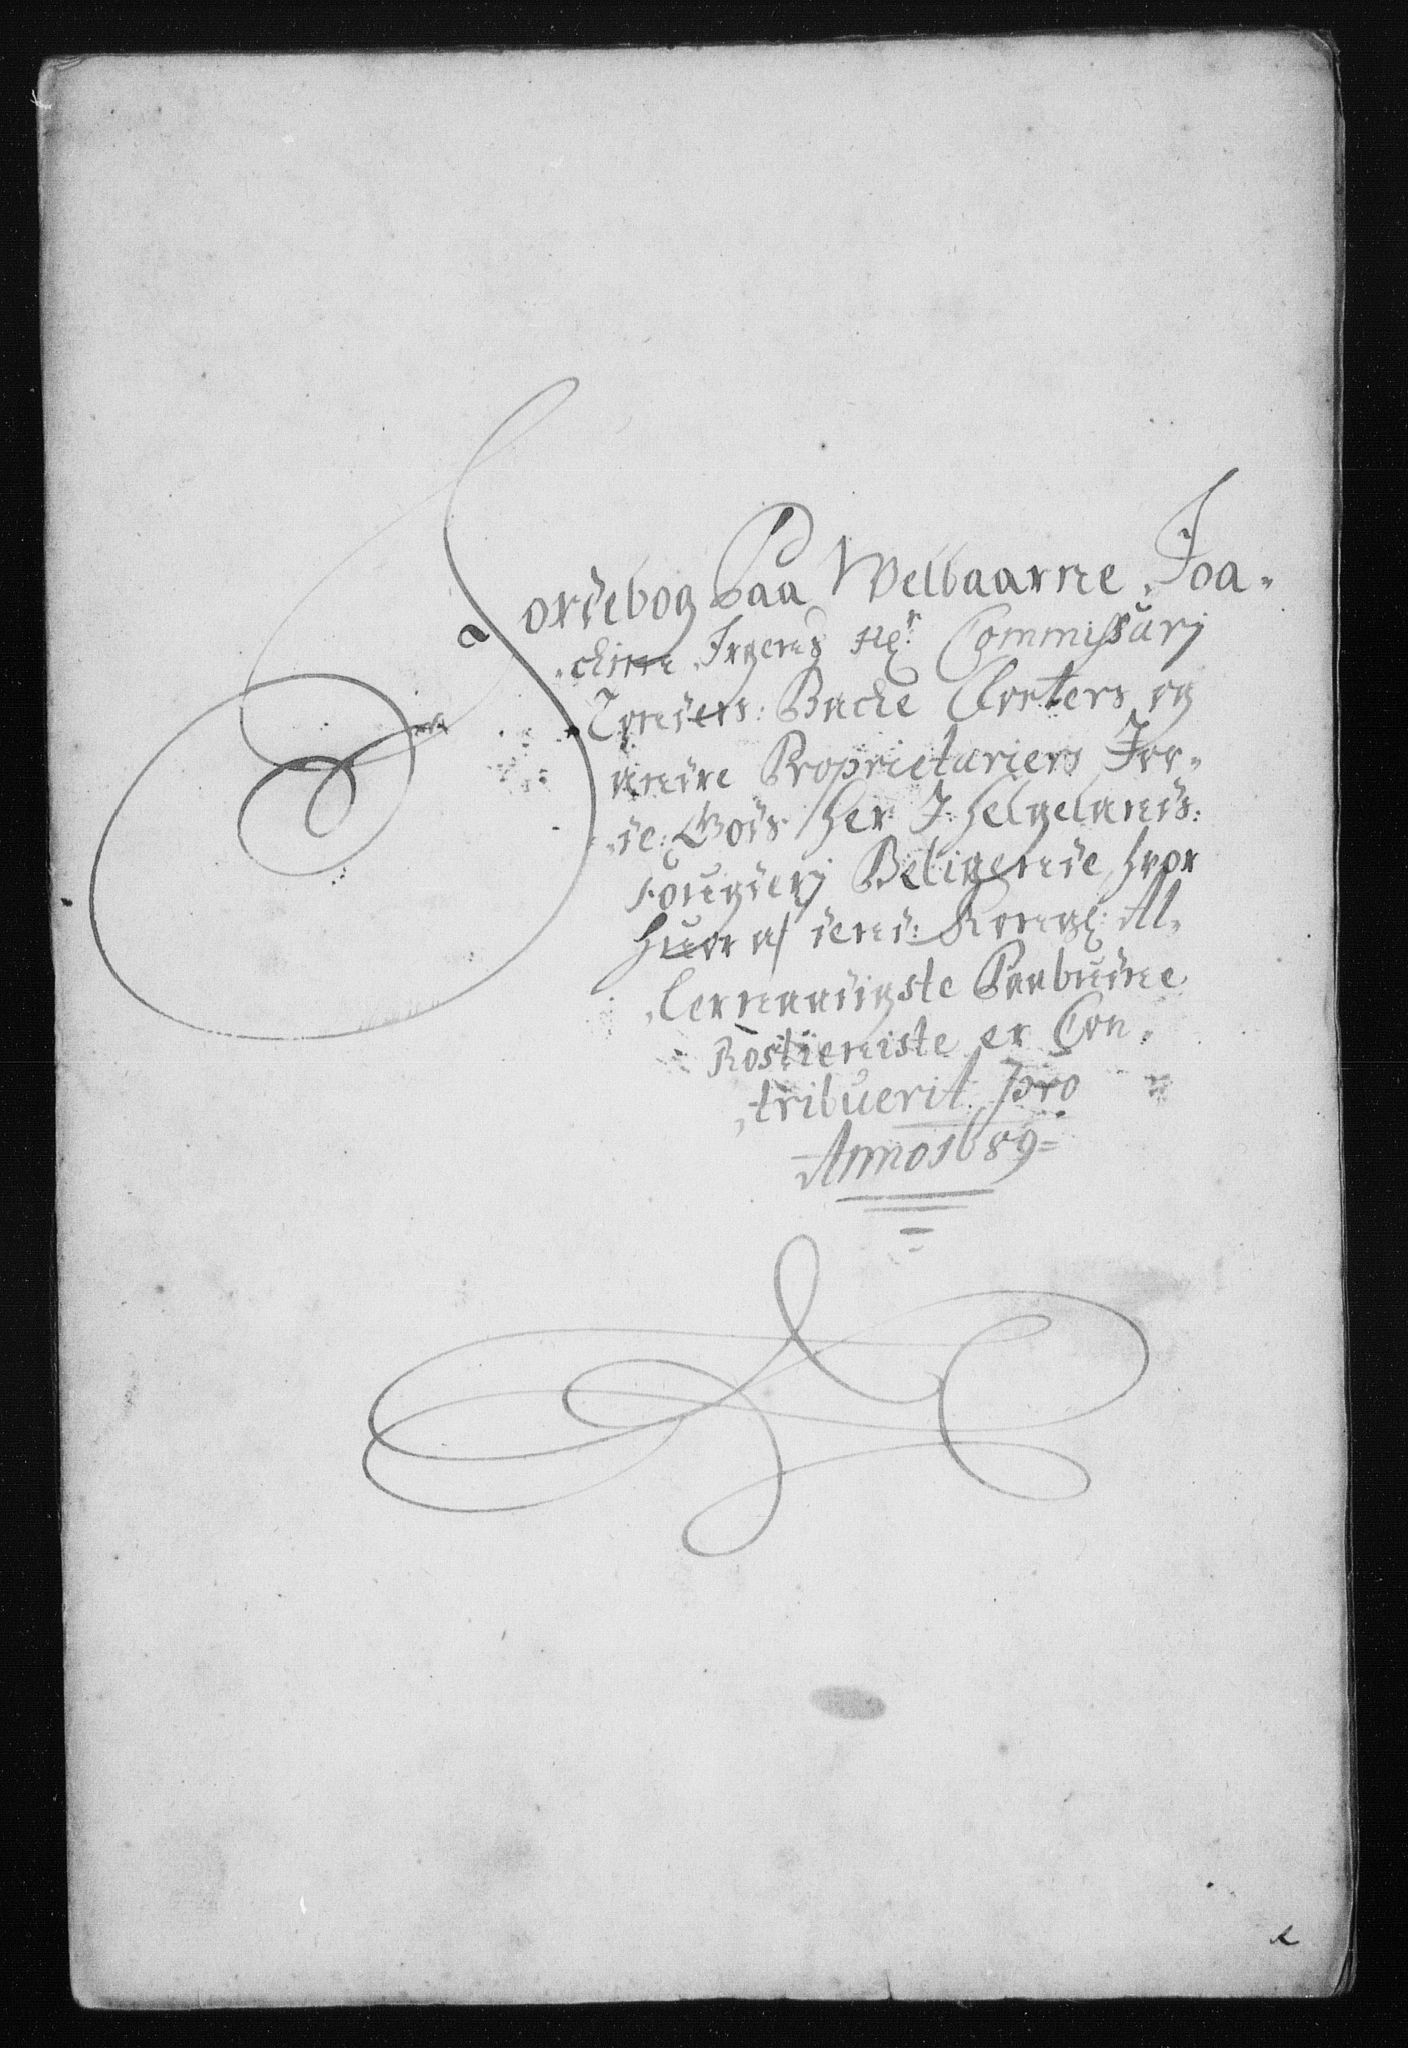 Jordebog Paa Welbaarne Joa-
chim Irgens Hr. Commissarj
Tonders: Bache Corters og
andre Proprietariers Jor-
de: Gods her J: Helgelands:
fougderj Beligende, hvor
huoraf dend: Kongl: Al-
lernaadigste Paabudne
Rostieniste er Con-
tribuerit pro
Anno 1689